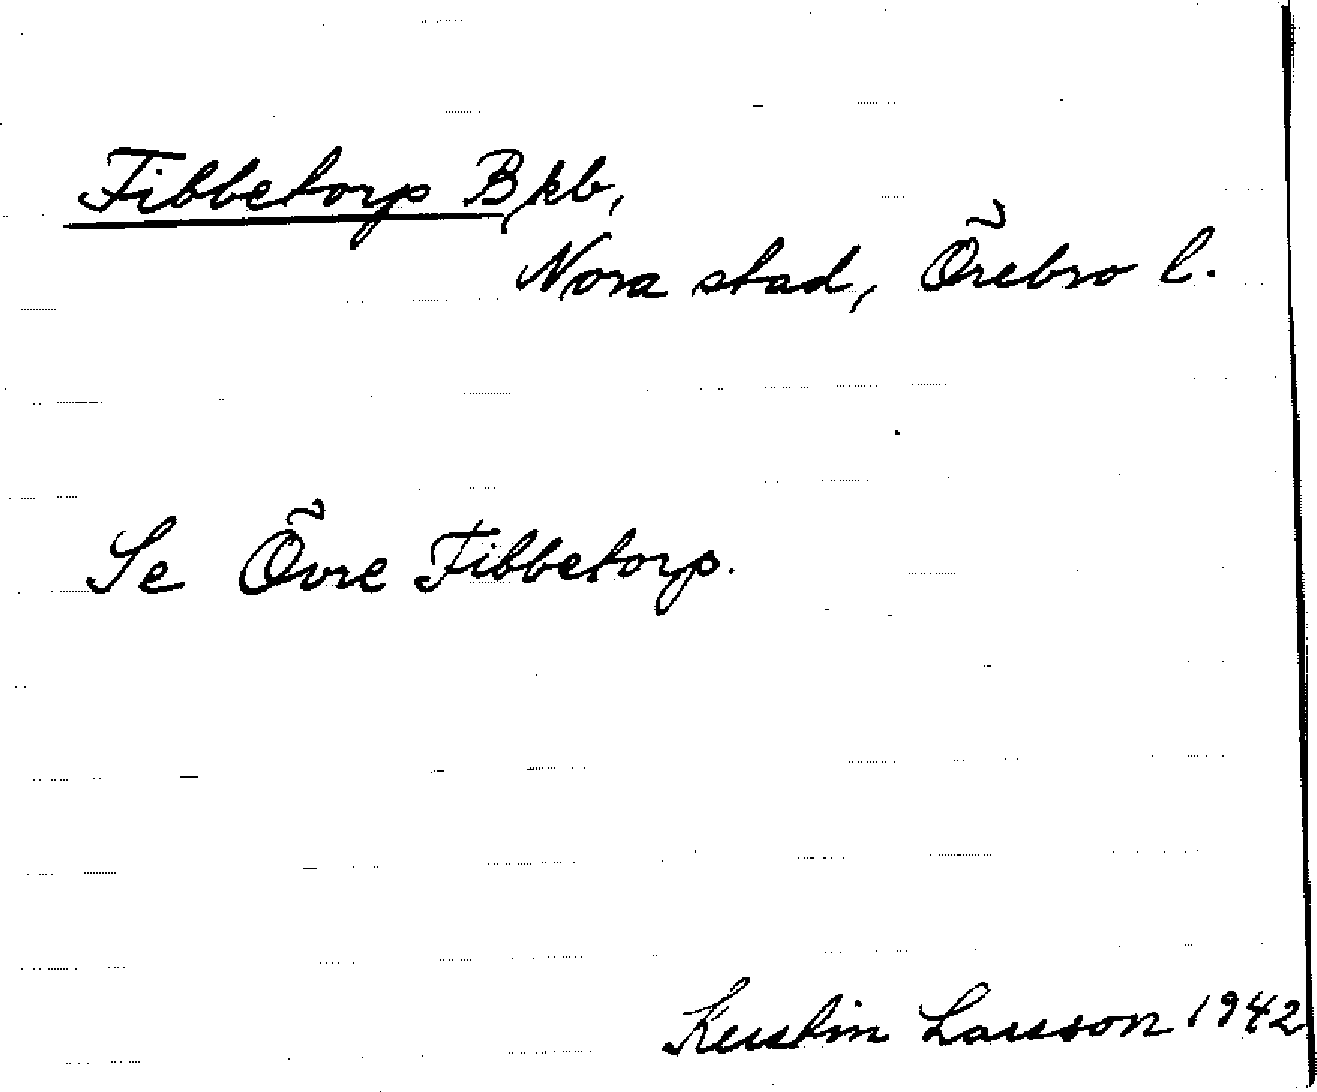 Fibbetorp B, kb,
Nora stad, Örebro l.
Se Övre Fibbetorp.
Kerstin Larsson 1942